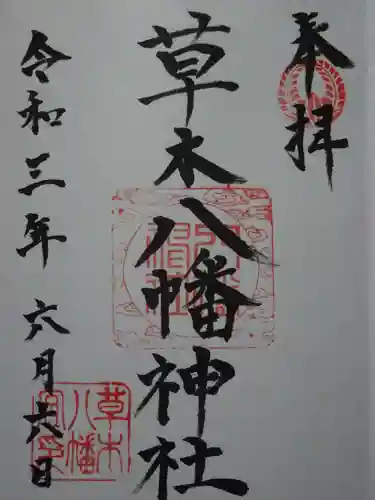 奉拝
草木八幡神社
令和三年六月六日
草木
八幡
宮印